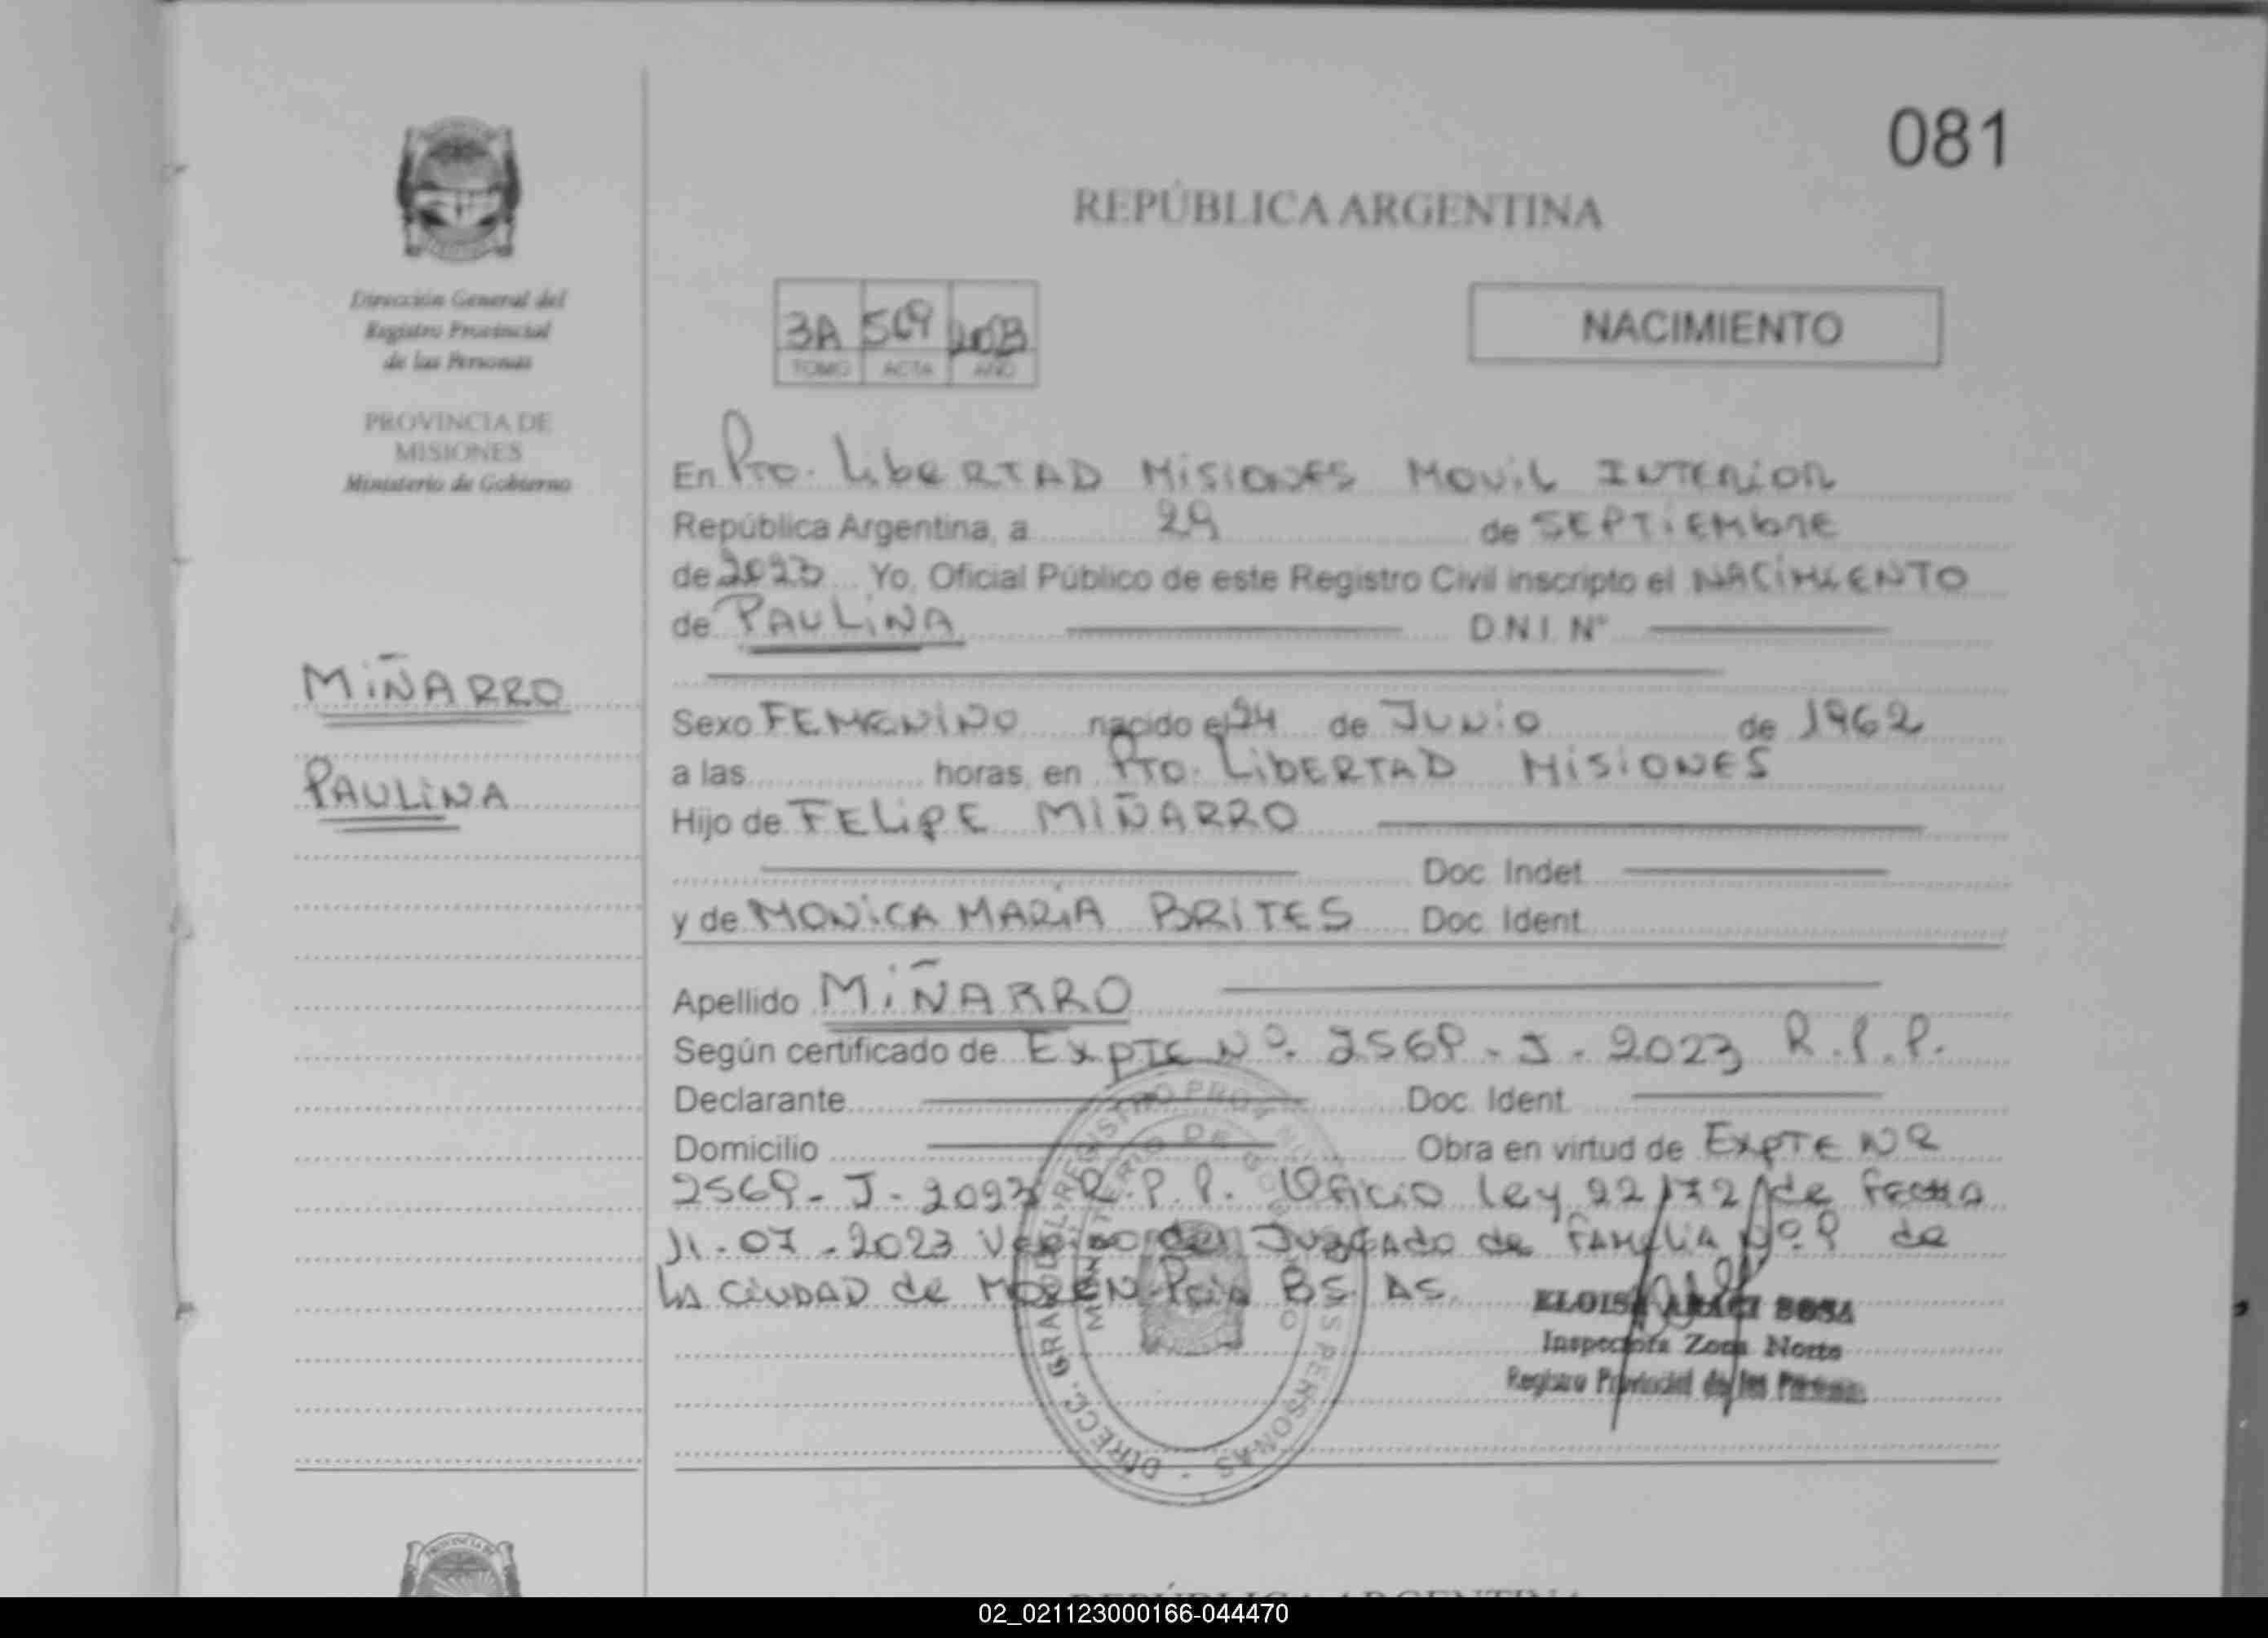 081
REPÚBLICA ARGENTINA
Dirección General del
Registro Provincial
de las Personas
PROVINCIA DE
MISIONES
Ministerio de Gobierno
3A 569
TOMO ACTA AÑO
NACIMIENTO
En Pto. LibERTAD MiSiONES MOViL INTERiOR
República Argentina, a 29 de SEPTiEMbRE
de 2023 Yo, Oficial Público de este Registro Civil inscripto el NACiMiENTO
de PAULiNA D.N.I. N°
MiÑARRO
PAULiNA
Sexo FEMENiNO nacido el 24 de JUNiO de 1962
a las horas, en PTO. LiBERTAD MiSiONES
Hijo de FELiPE MIÑARRO
Doc. Indet.
y de MONiCA MARiA BRiTES Doc. Ident.
Apellido MiÑARRO
Según certificado de ExpTE Nº. 2569 - J - 2023 R.P.P.
Declarante Doc. Ident.
Domicilio Obra en virtud de ExpTE Nº
2569 - J - 2023 R.P.P. Oficio Ley 22172 de FECHA
11.07.2023 JUZGAdo de FAMiLiA Nº. de
LA CiUDAD de Pcia BS. AS.
ELOISA ARACI SOSA
Inspectora Zona Norte
Registro Provincial de las Personas
DIRECC. GRAL. DEL REGISTRO PROVINCIAL DE LAS PERSONAS -
MINISTERIO DE GOBIERNO
REPÚBLICA ARGENTINA
02_021123000166-044470